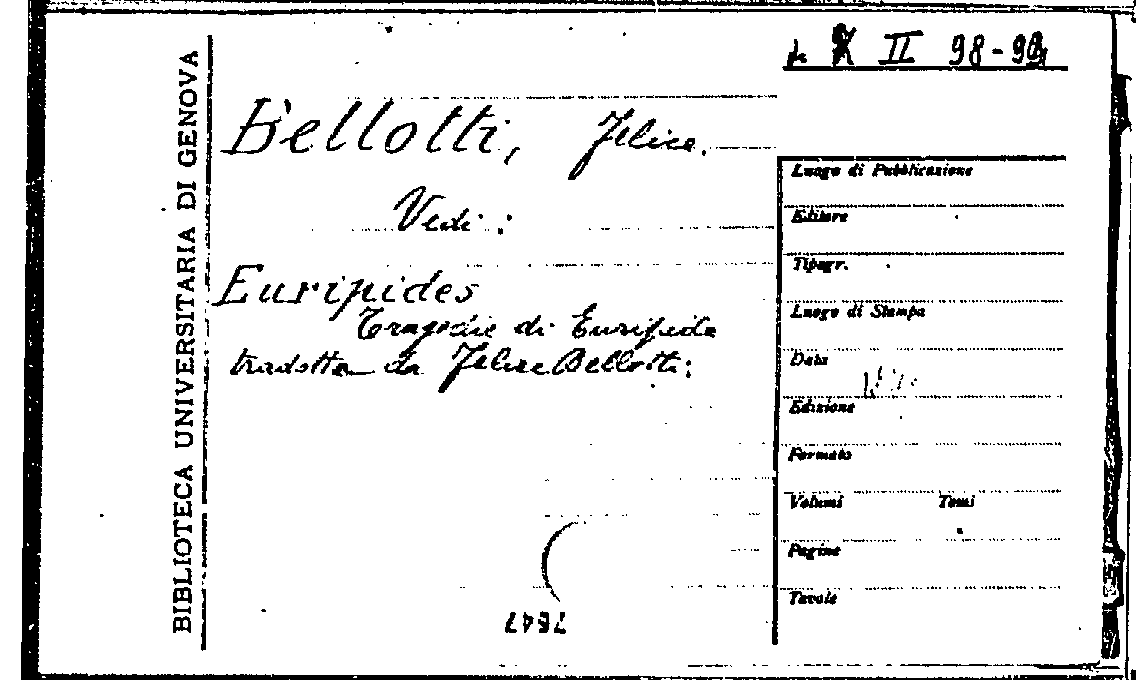 II 98-99
BIBLIOTECA UNIVERSITARIA DI GENOVA
Bellotti, Felice.
Vedi:
Euripides
Tragedie di Euripide
tradotte da Felice Bellotti:
Luogo di Pubblicazione
Editore
Tipogr.
Luogo di Stampa
Data
Edizione
Formato
Volumi Tomi
Pagine
Tavole
7647